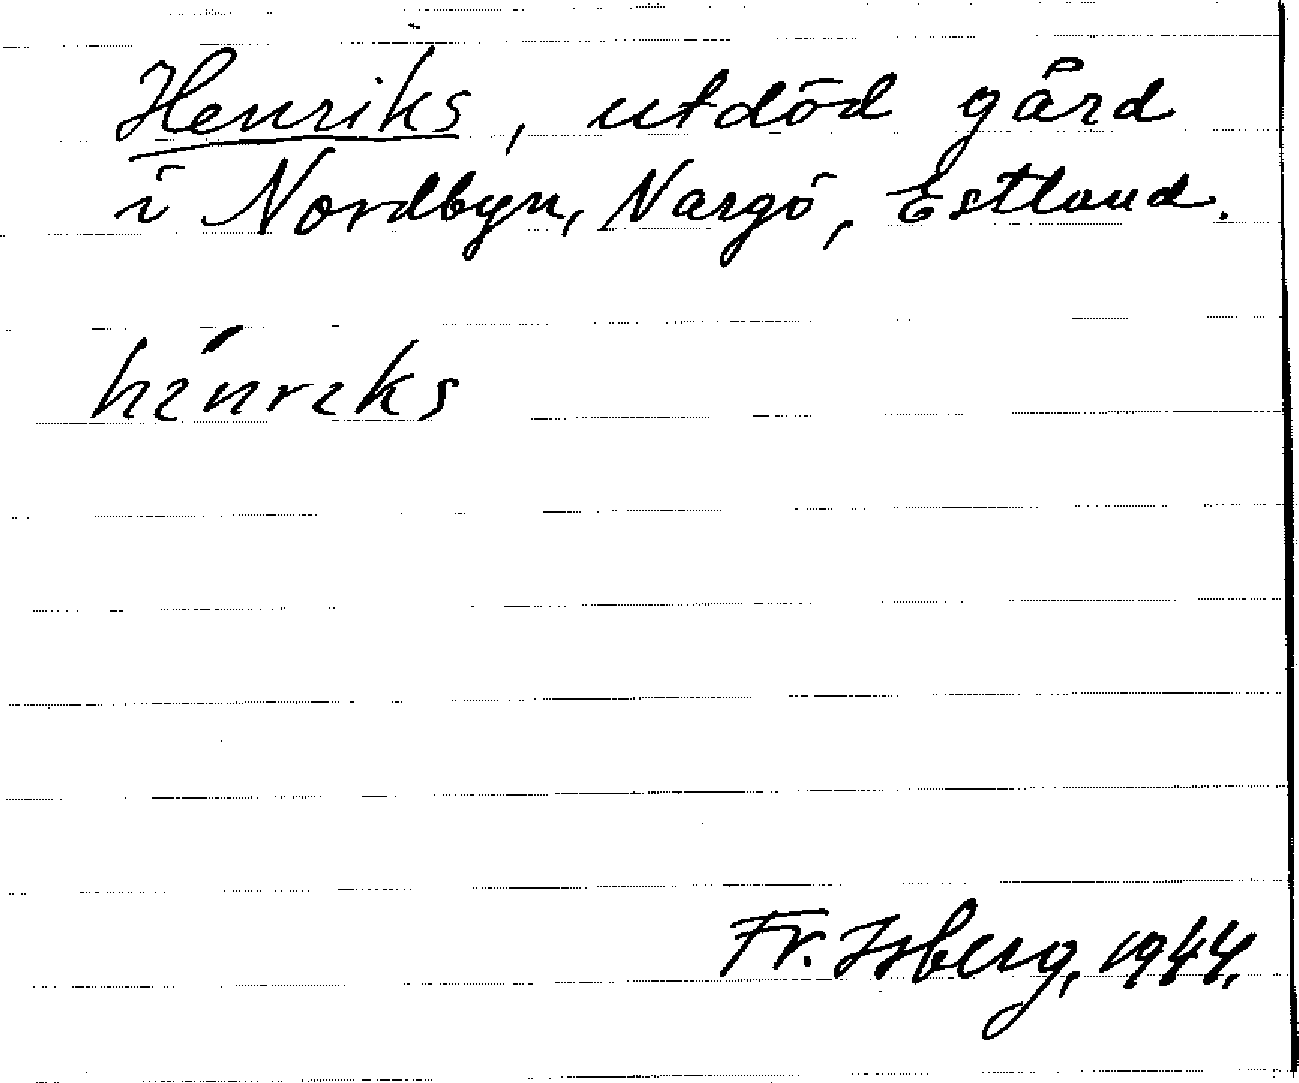 Henriks, utdöd gård
i Nordbyn, Nargö, Estland.
henrɩks
Fr. Isberg, 1944.